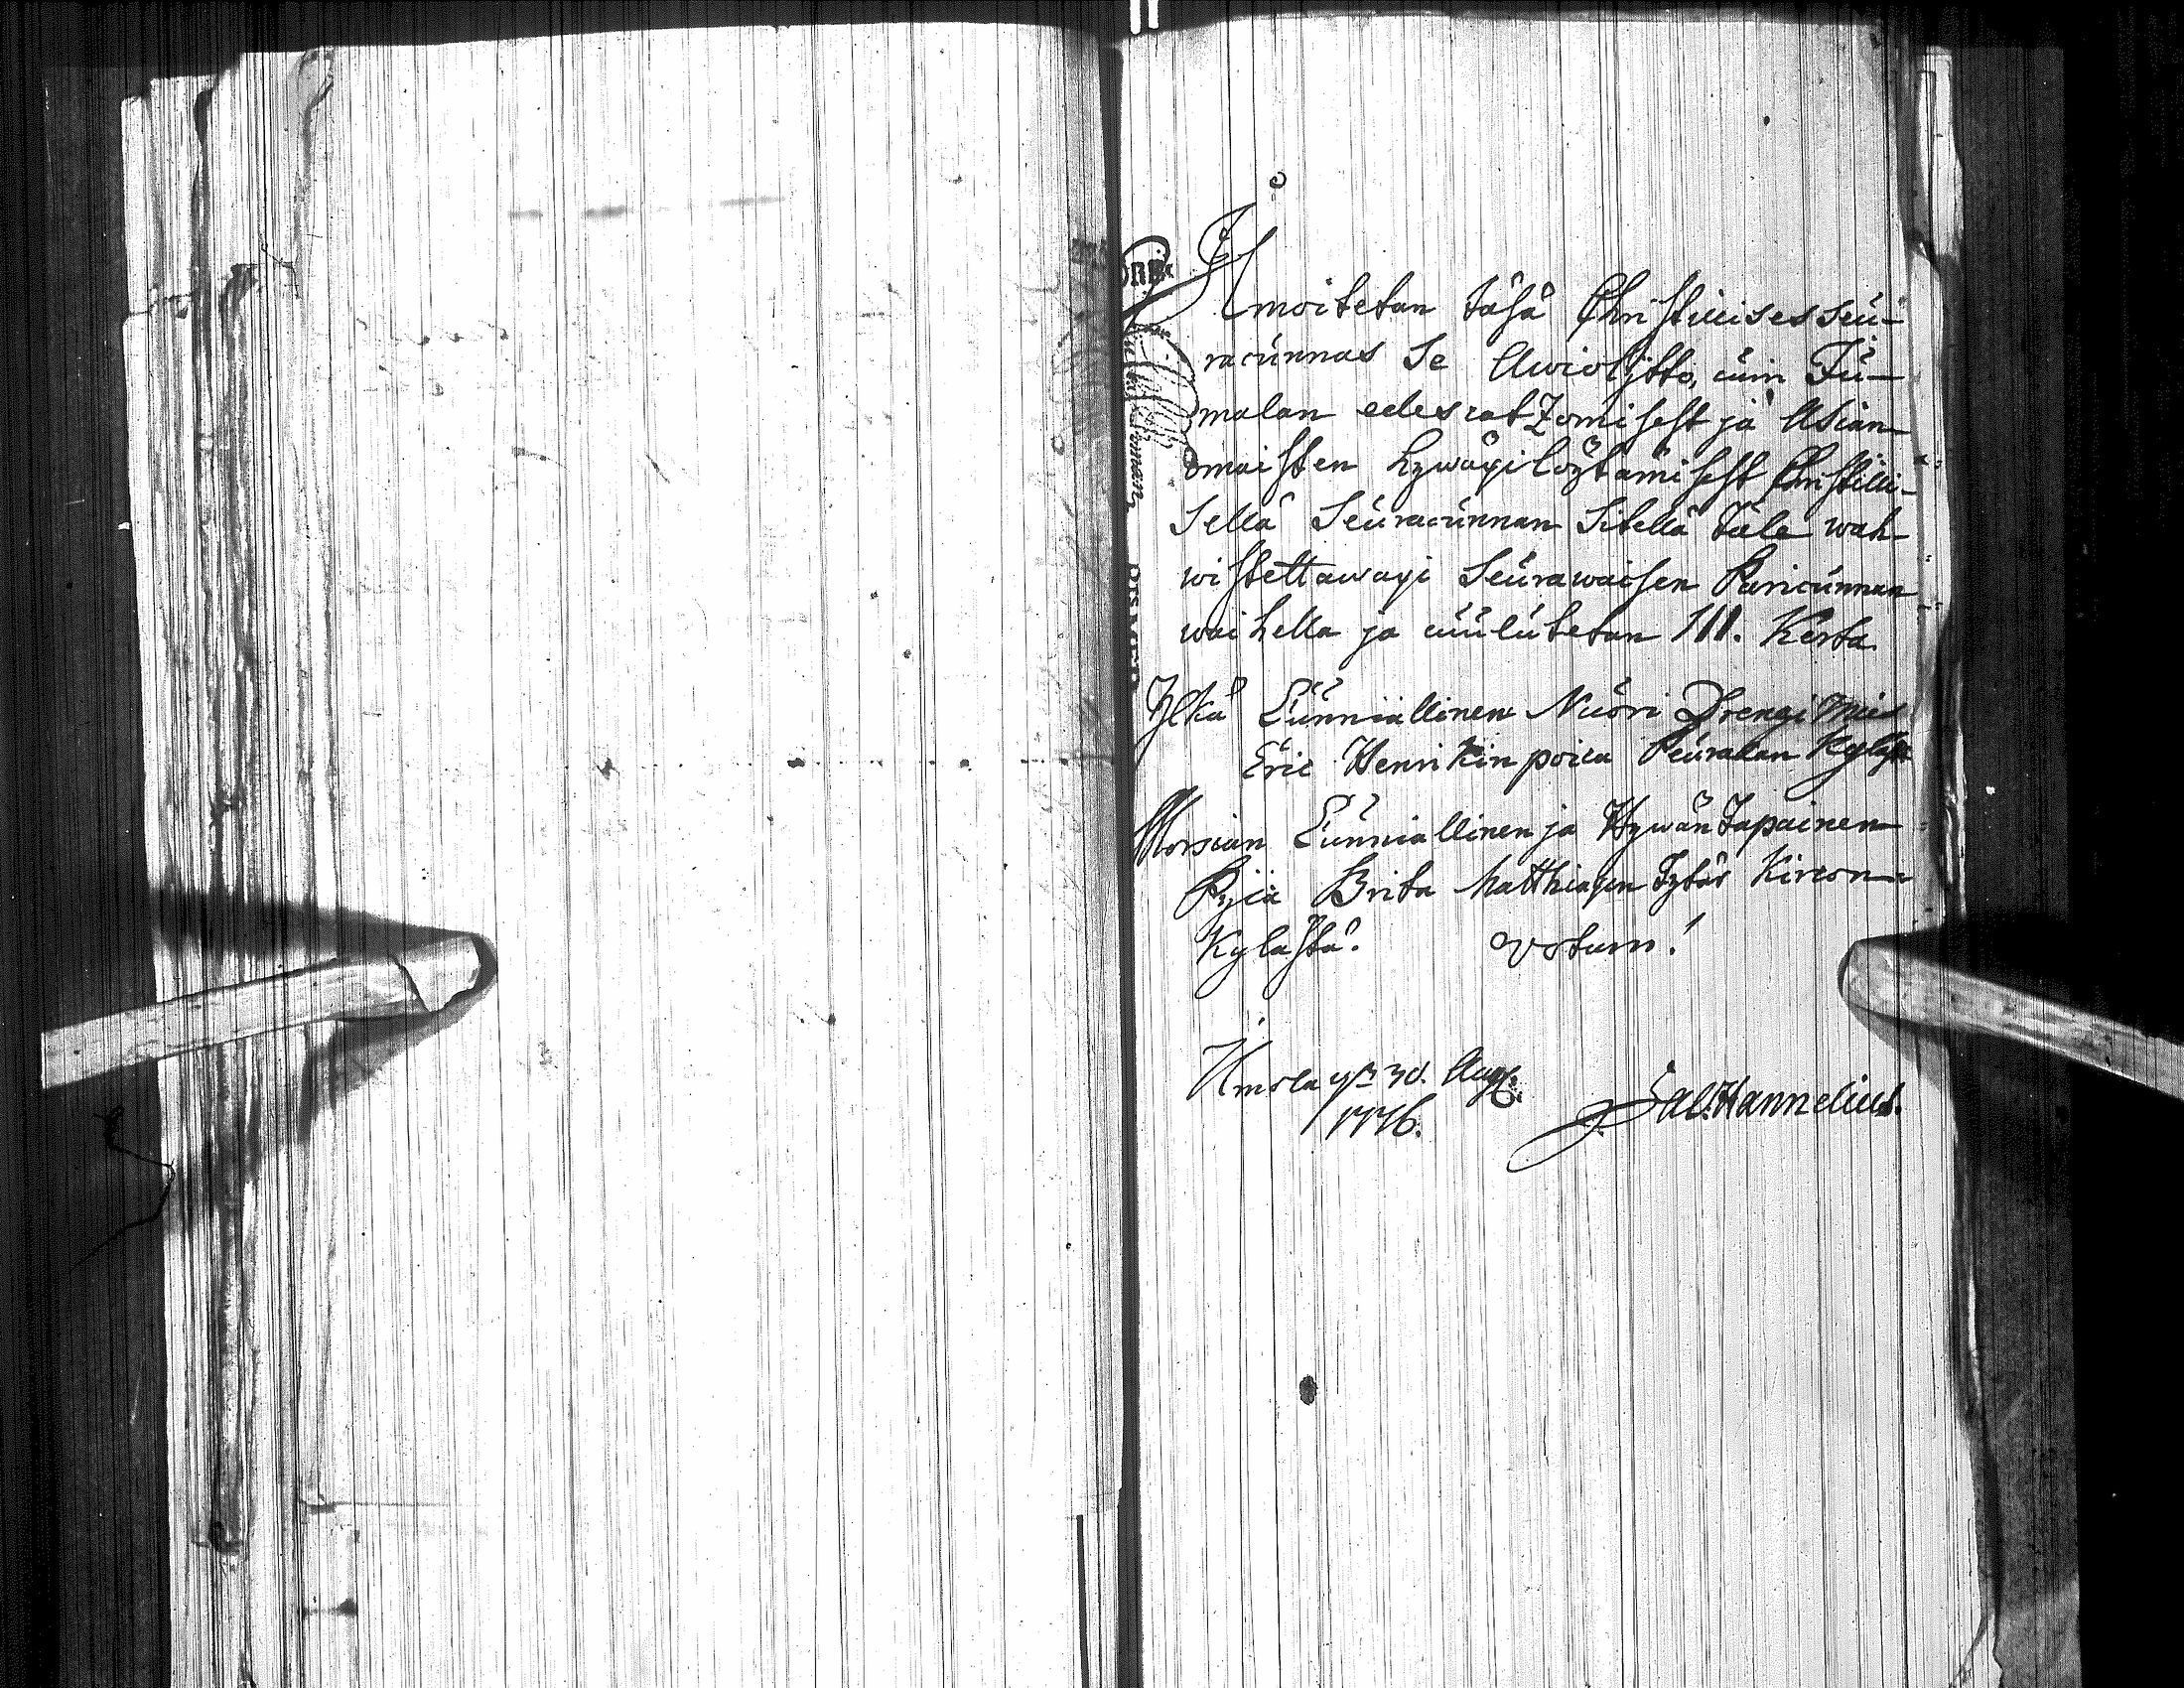 Ilmoitetan täsä Christilises seu-
racunnas Se Awioljitto, cuin Ju-
malan edescatzomisest ja Asian
omaisten hywäxi löytämisest Christilli-
sellä Seuracunnan Sitellä tule wah-
wistettawaxi Seurawaisen Paricunnan
waihella ja cuulutetan III. Kerta
Ylkä Cunniallinen Nuori Drengi Mies
Eric Henrikin poica Peuralan Kyläst
Morsian Cunniallinen ja Hywän Tapainen
Pijca Brita Matthiaxen Tytär Kircon
Kylästä. Votum!
Ilmola 30. Aug.
1776. Sal. Hannelius.